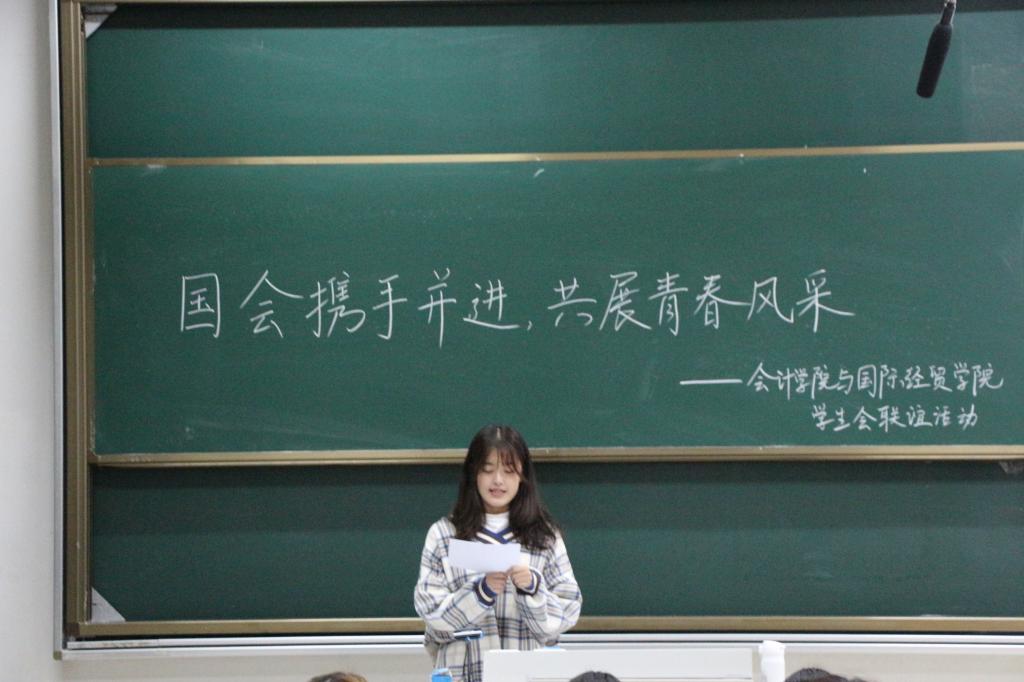 国会携手并进,共展青春风采
——会计学院与国际经贸学院
学生会联谊活动